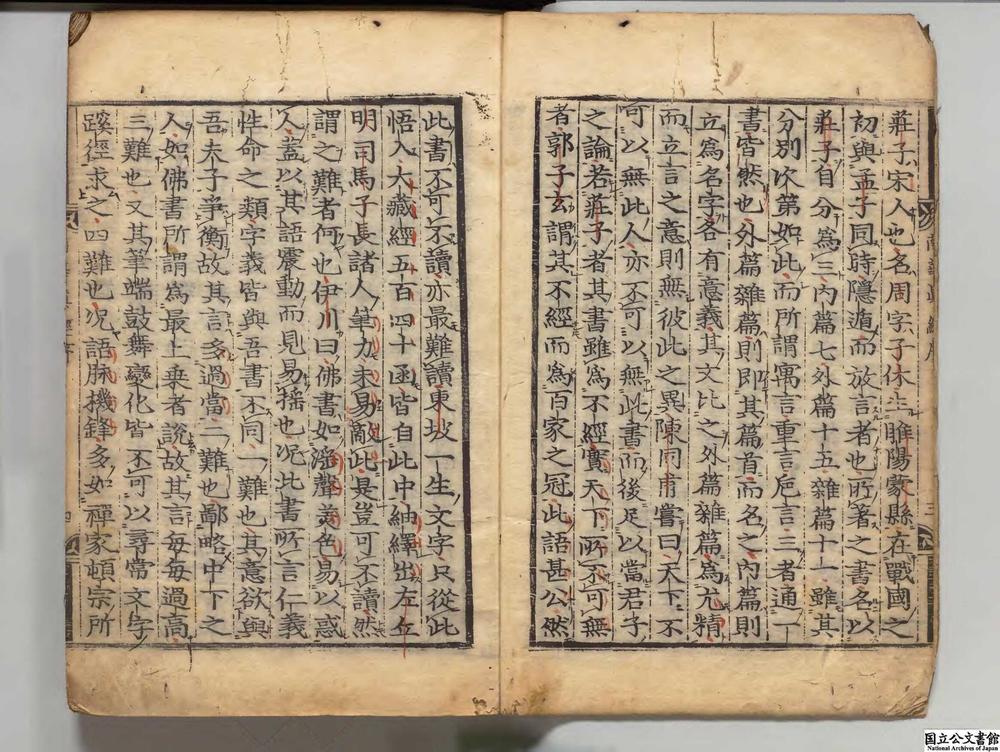 莊子宋人也名周字子休生睢陽蒙縣在戰國之
初與孟子同時隱遁而放言者也所著之書名以
莊子自分爲三內篇七外篇十五雜篇十一雖其
分別次第如此而所謂寓言重言巵言三者通一
書皆然也外篇雜篇則即其篇首而名之內篇則
立爲名字各有意義其文比之外篇雜篇爲尤精
而立言之意則無彼此之異陳同甫嘗曰天下不
可以無此人亦不可以無此書而後足以當君子
之論若莊子者其書雖爲不經實天下所不可無
者郭子玄謂其不經而爲百家之冠此語甚公然
此書不可不讀亦最難讀東坡一生文字只從此
悟入大藏經五百四十函皆自此中紬繹出左丘
明司馬子長諸人筆力未易敵此是豈可不讀然
謂之難者何也伊川曰佛書如滛聲美色易以惑
人蓋以其語震動而見易搖也況此書所言仁義
性命之類字義皆與吾書不同一難也其意欲與
吾夫子爭衡故其言多過當二難也鄙略中下之
人如佛書所謂爲最上乗者說故其言每每過高
三難也又其筆端鼓舞變化皆不可以尋常文字
蹊徑求之四難也況語脉機鋒多如禪家頓宗所
国立公文書館
National Archives of Japan